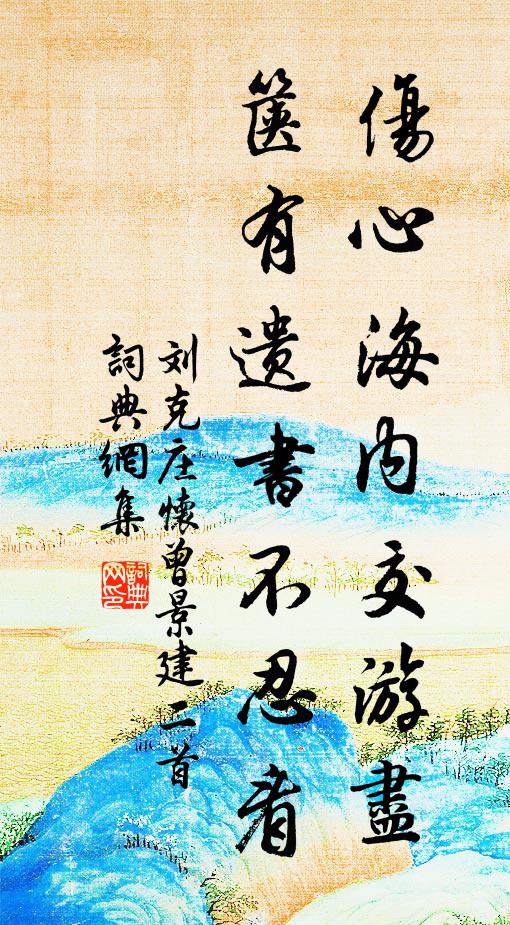 傷心海内交游盡
篋有遺書不忍看
刘克庄懷曾景建二首
詞典網集
詞典网印